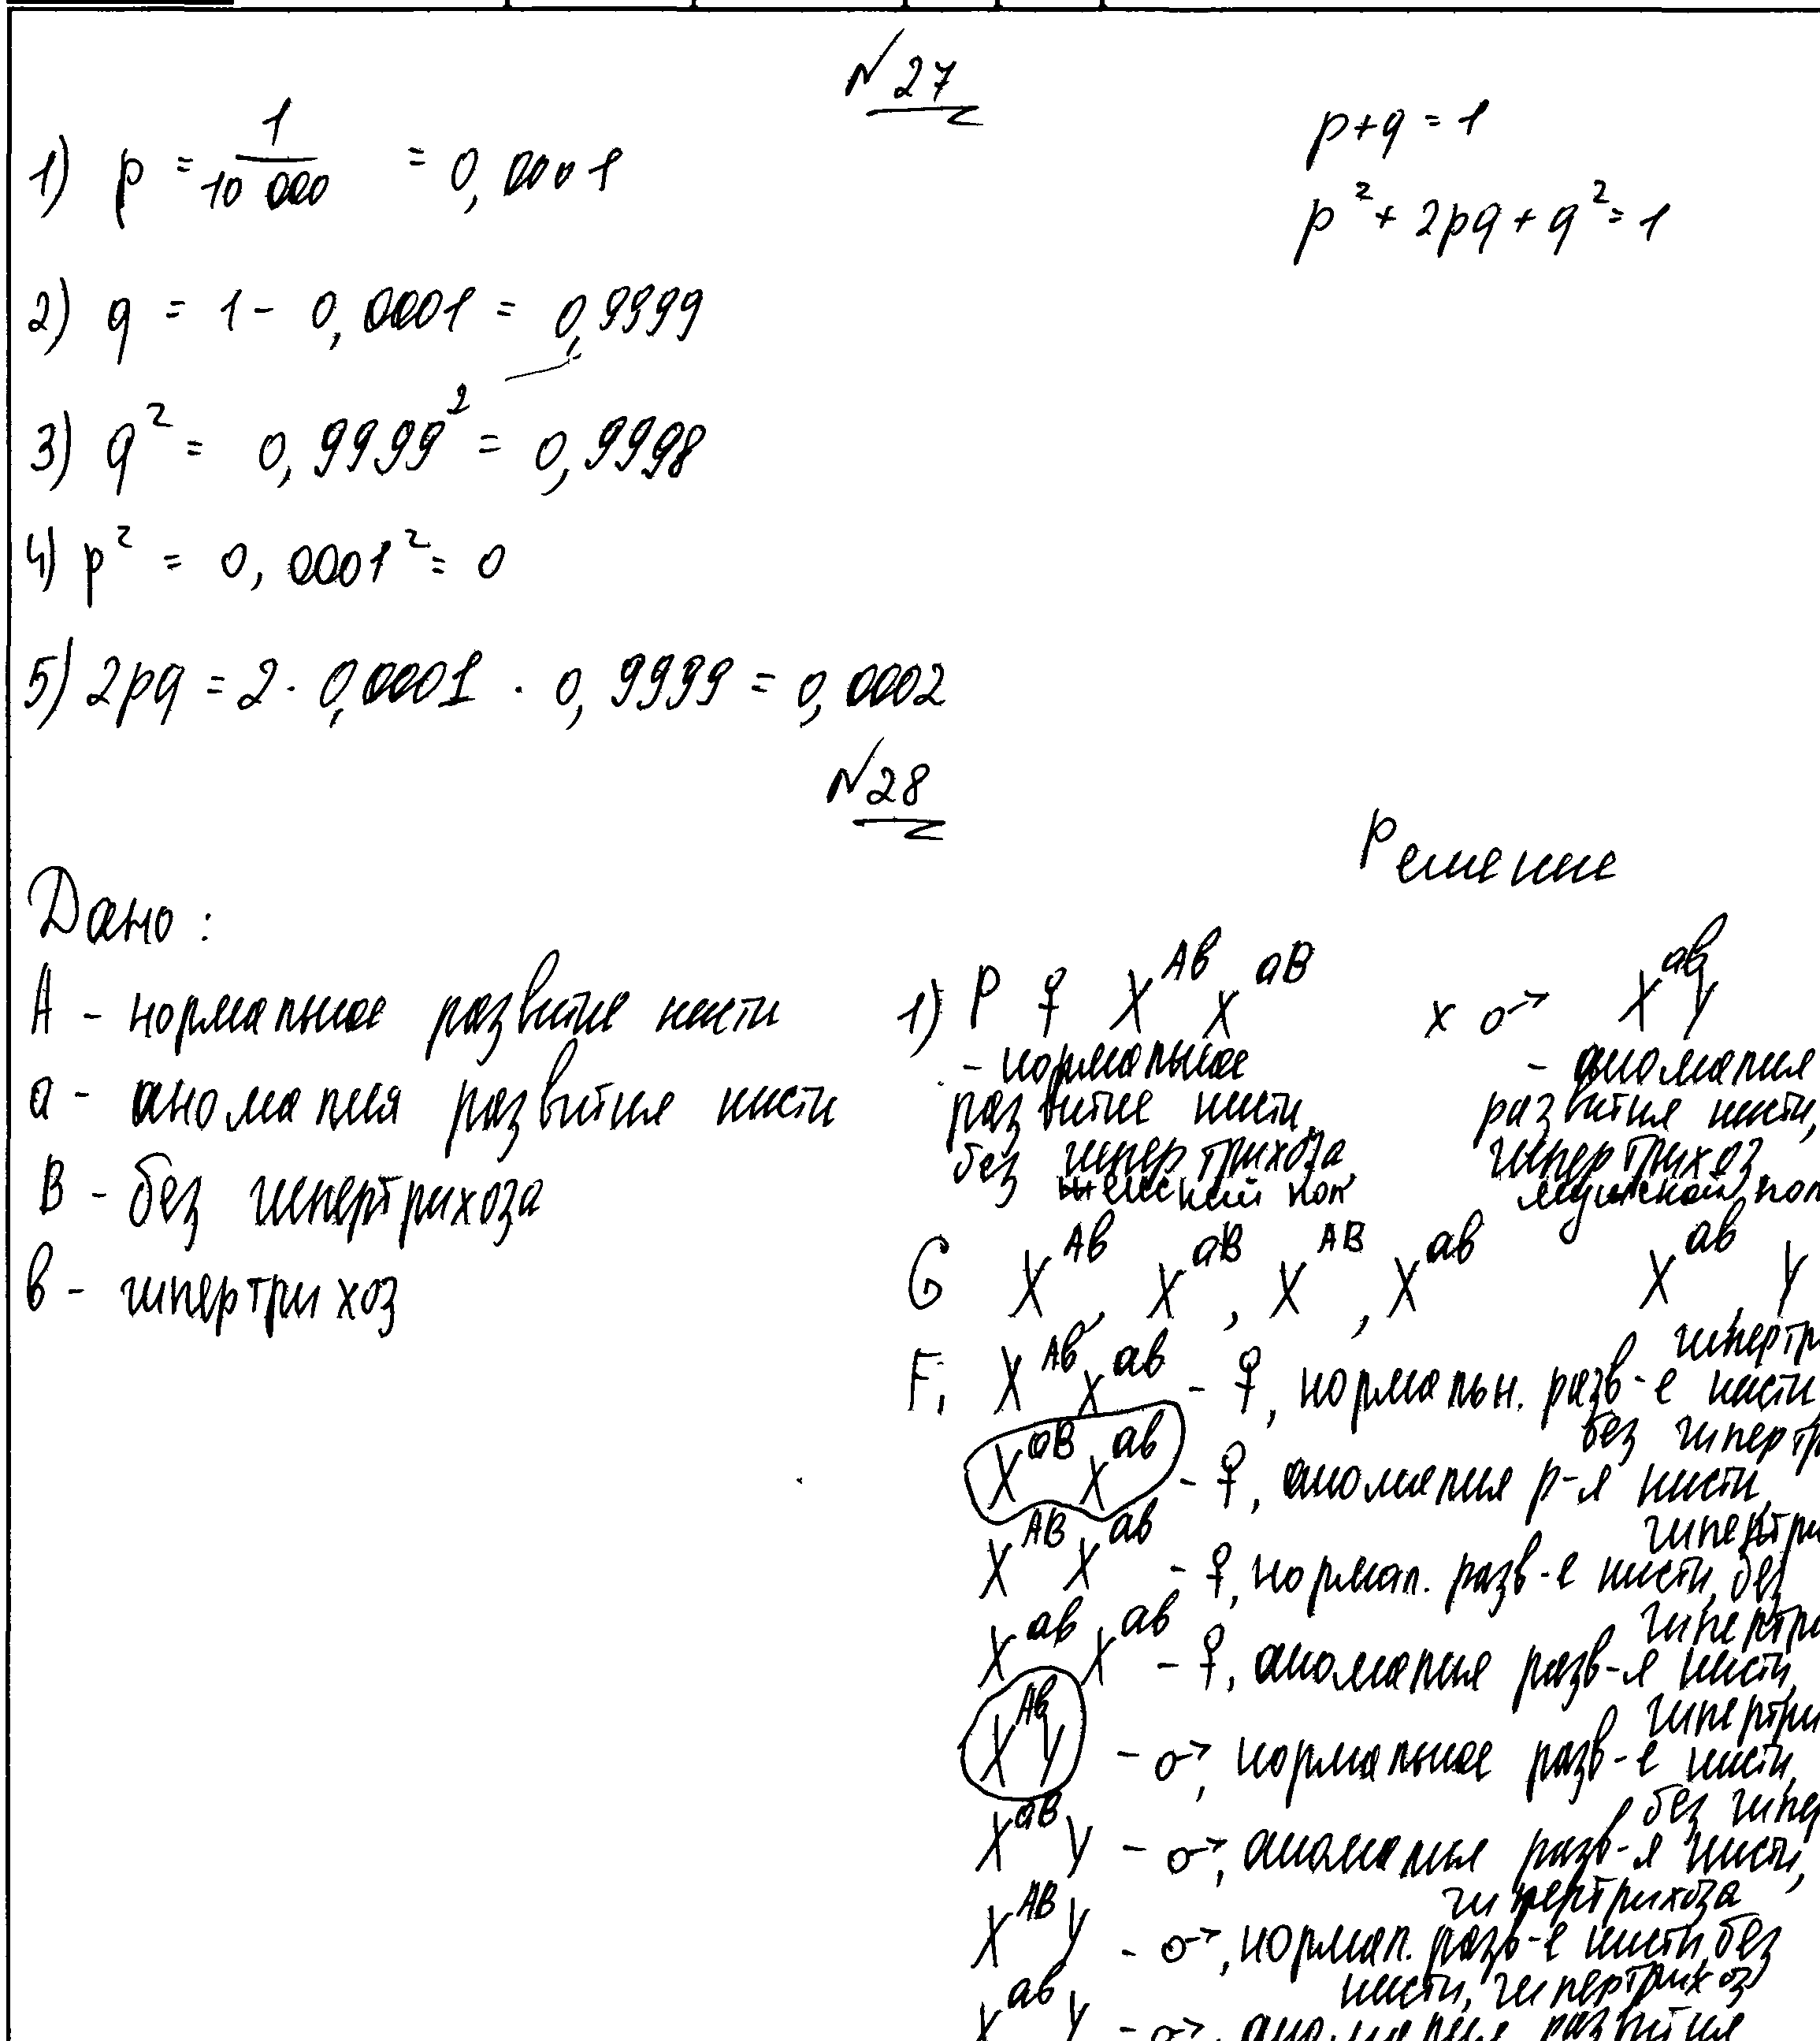 №27
1) p = 1/10 000 = 0,0001
p+q = 1
p² + 2pq + q² = 1
2) q = 1 - 0,0001 = 0,9999
3) q² = 0,9999² = 0,9998
4) p² = 0,0001² = 0
5) 2pq = 2 · 0,0001 · 0,9999 = 0,0002
№28
Решение
Дано:
А - нормальное развитие кисти
а - аномалия развития кисти
В - без гипертрихоза
в - гипертрихоз
1) P ♀ X^Ab X^aB x ♂ X^ab Y
- нормальное
развитие кисти,
без гипертрихоза,
женский пол
- аномалия
развития кисти,
гипертрихоз,
мужской пол
G X^Ab, X^aB, X^AB, X^ab X^ab, Y
гипертри
F₁ X^Ab X^ab - ♀, нормальн. разв-е кисти,
без гипертр
X^aB X^ab - ♀, аномалия р-я кисти,
гипертри
X^AB X^ab - ♀, нормал. разв-е кисти, без
гипертри
X^ab X^ab - ♀, аномалия разв-я кисти,
гипертри
X^Ab Y - ♂, нормальное разв-е кисти,
без гипер
X^aB Y - ♂, аномалия разв-я кисти,
гипертрихоза
X^AB Y - ♂, нормал. разв-е кисти, без
кисти, гипертрихоз
X^ab Y - ♂, аномалия развития